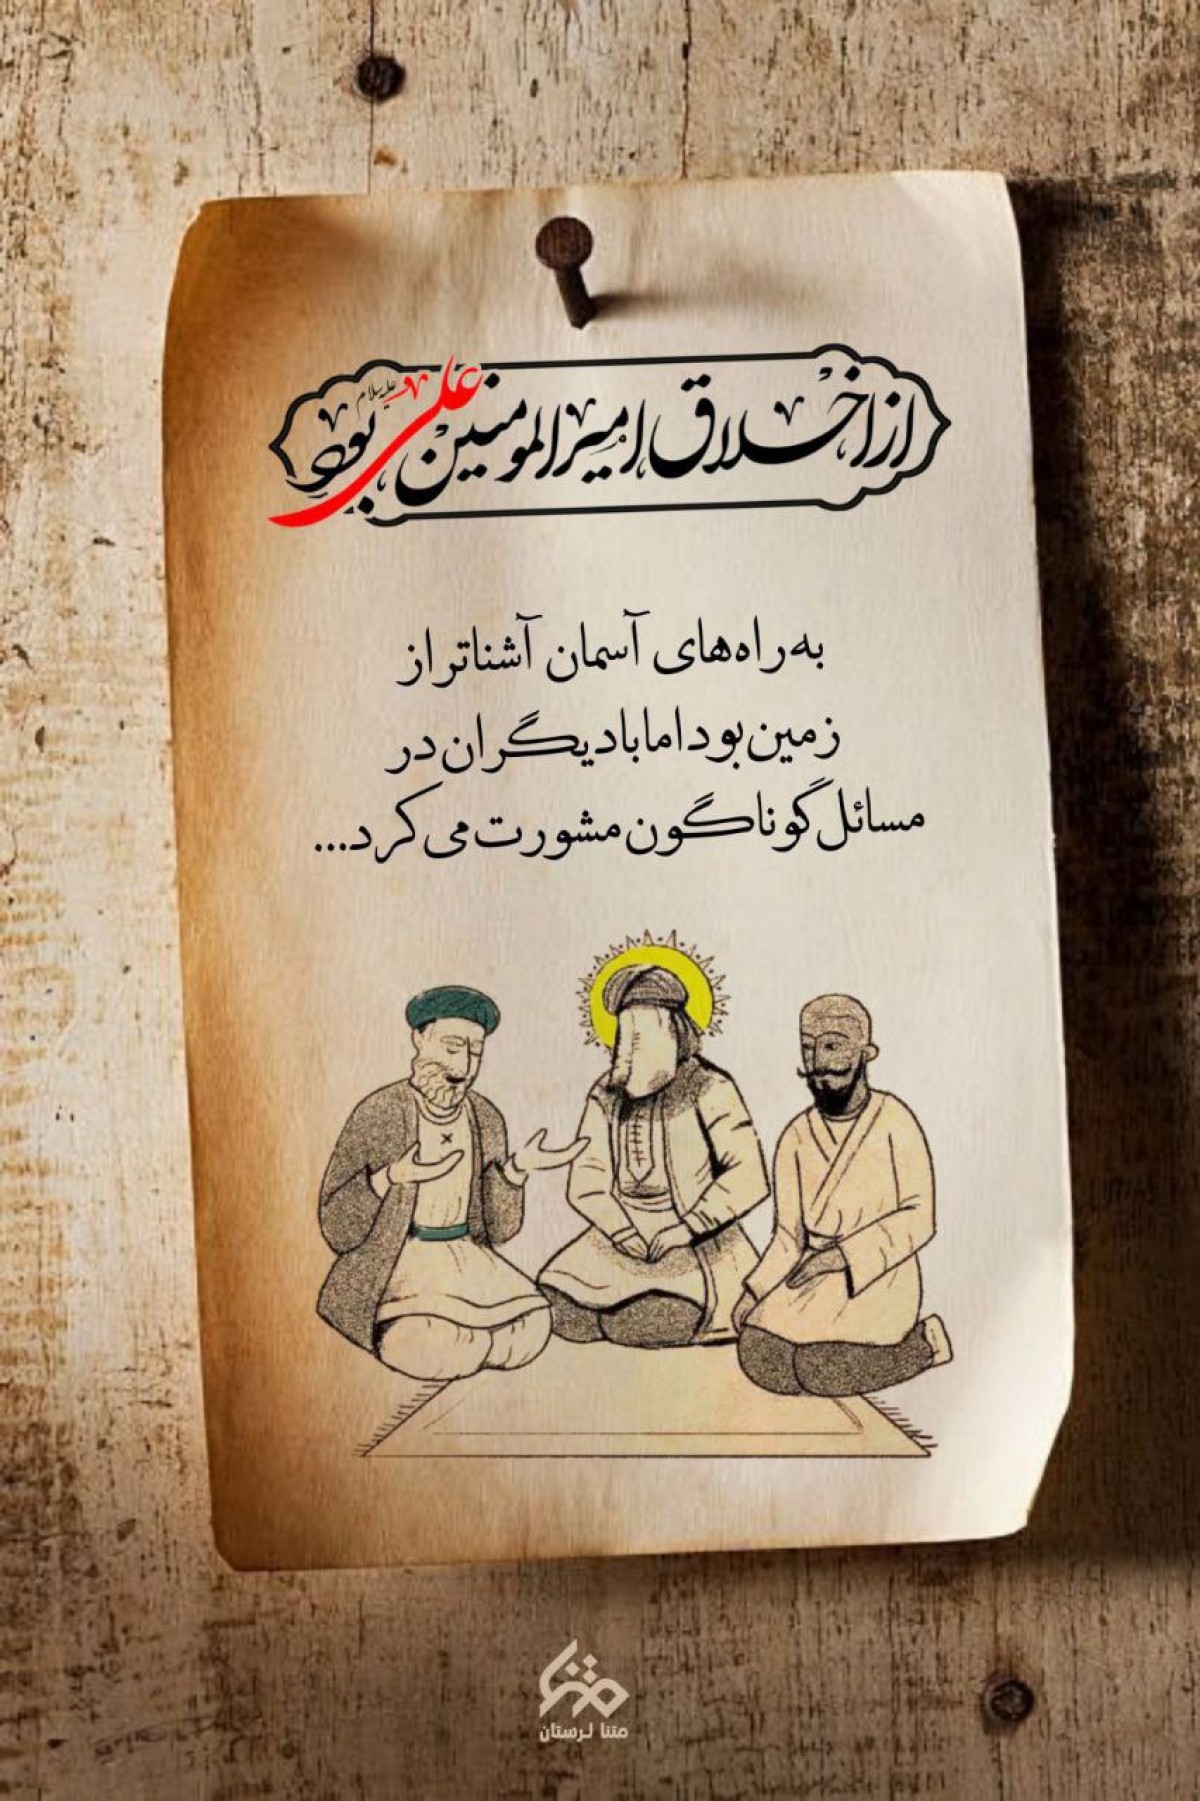 از اخلاق امیرالمومنین علی علیه‌السلام بود
به راه‌های آسمان آشناتر از
زمین بود اما با دیگران در
مسائل گوناگون مشورت می‌کرد...
متنا
متنا لرستان